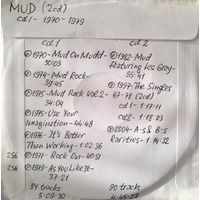 MUD (2cd)
cd1 - 1970 - 1979
cd 1
1970 - Mud On Mudd -
30:03
1974 - Mud Rock -
39:45
1975 - Mud Rock Vol.2 -
34:04
1975 - Use Your
Imagination - 44:48
1976 - It's Better
Than Working - 1:02:36
256 1977 - Rock On - 40:51
256 1979 - As You Like It -
37:21
84 tracks
5:09:30
cd 2
1982 - Mud
featuring Les Gray -
55:41
1997 - The Singles
67-78 RAK Years
cd1 - 1:17:11
cd2 - 1:18:03
2004 - A-S & B-S
Rarities - 1:14:32
90 tracks
4:45:29